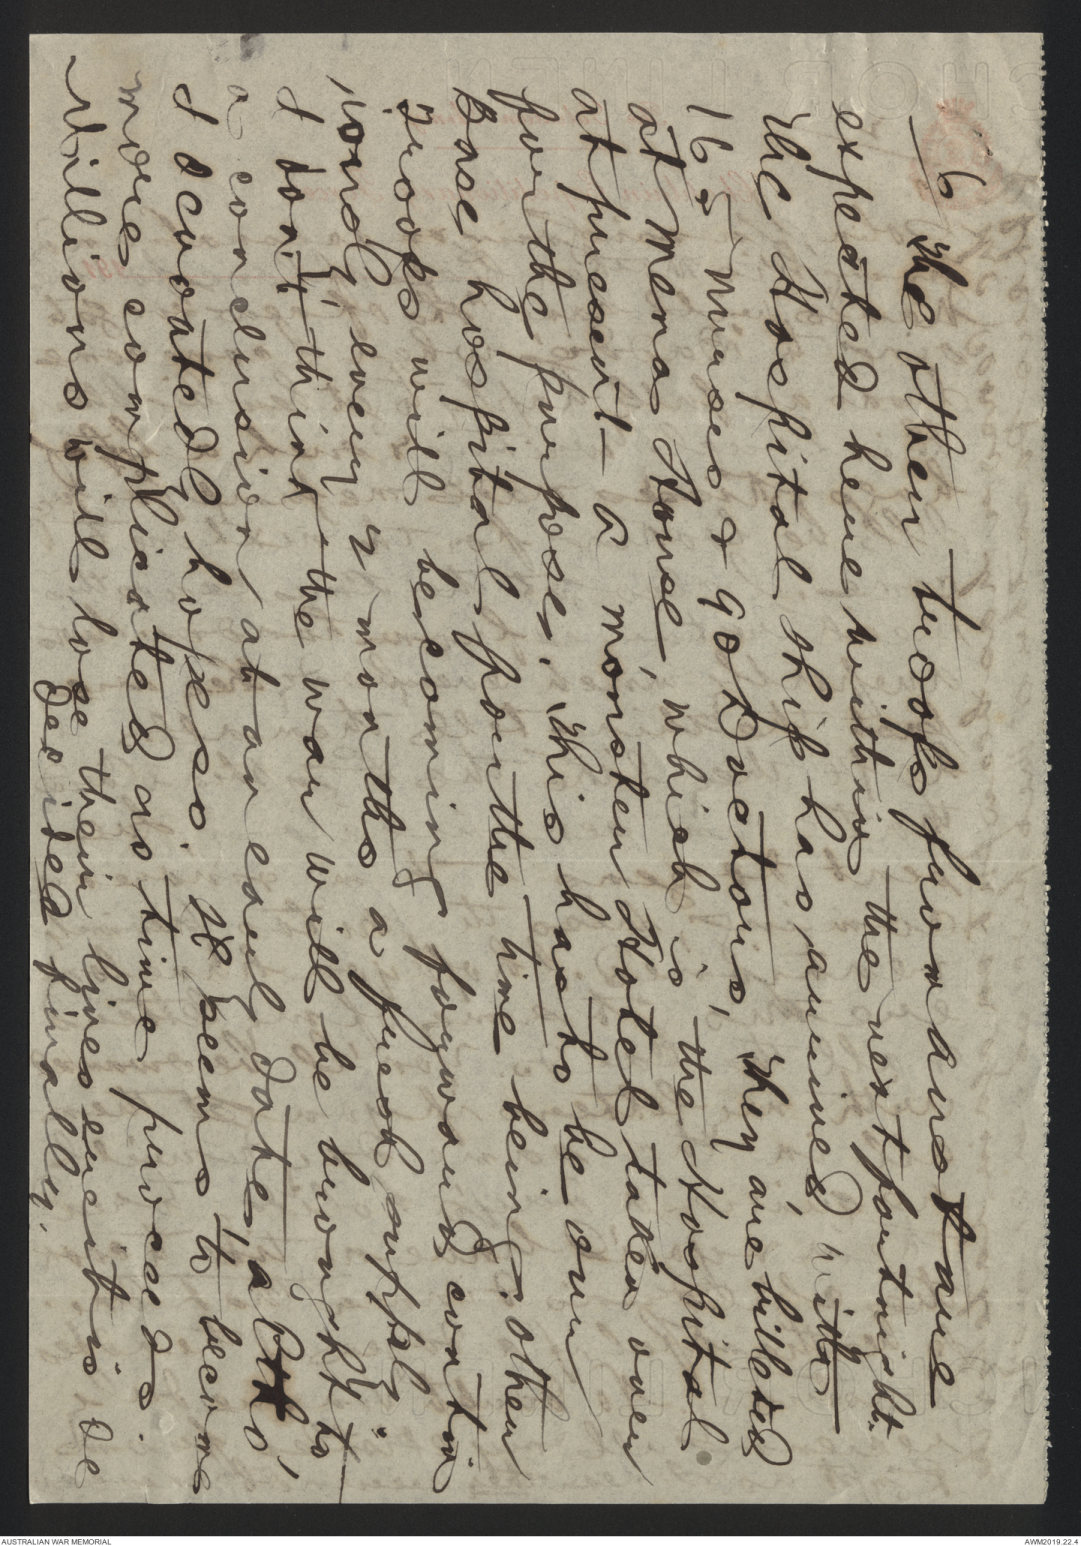 6
The other troops from aust are
expected here within the next fortnight.
The Hospital ship has arrived with
165 nurses & 90 Doctors, They are billeted
at Mena House, which is the Hospital
at present - a monster Hotel taken over
for the purpose. This has to be our
Base hospital for the time being. other
troops will be coming forward contin
uously every 2 months a fresh supply.
I don't think the war will be brought to
a conclusion at an early date, altho'
I devoutedly hope so. It seems to become
more complicated as time proceeds.
Millions will lose their lives ere it is de
decided finally.
AUSTRALIAN WAR MEMORIAL
AWM2019.22.4